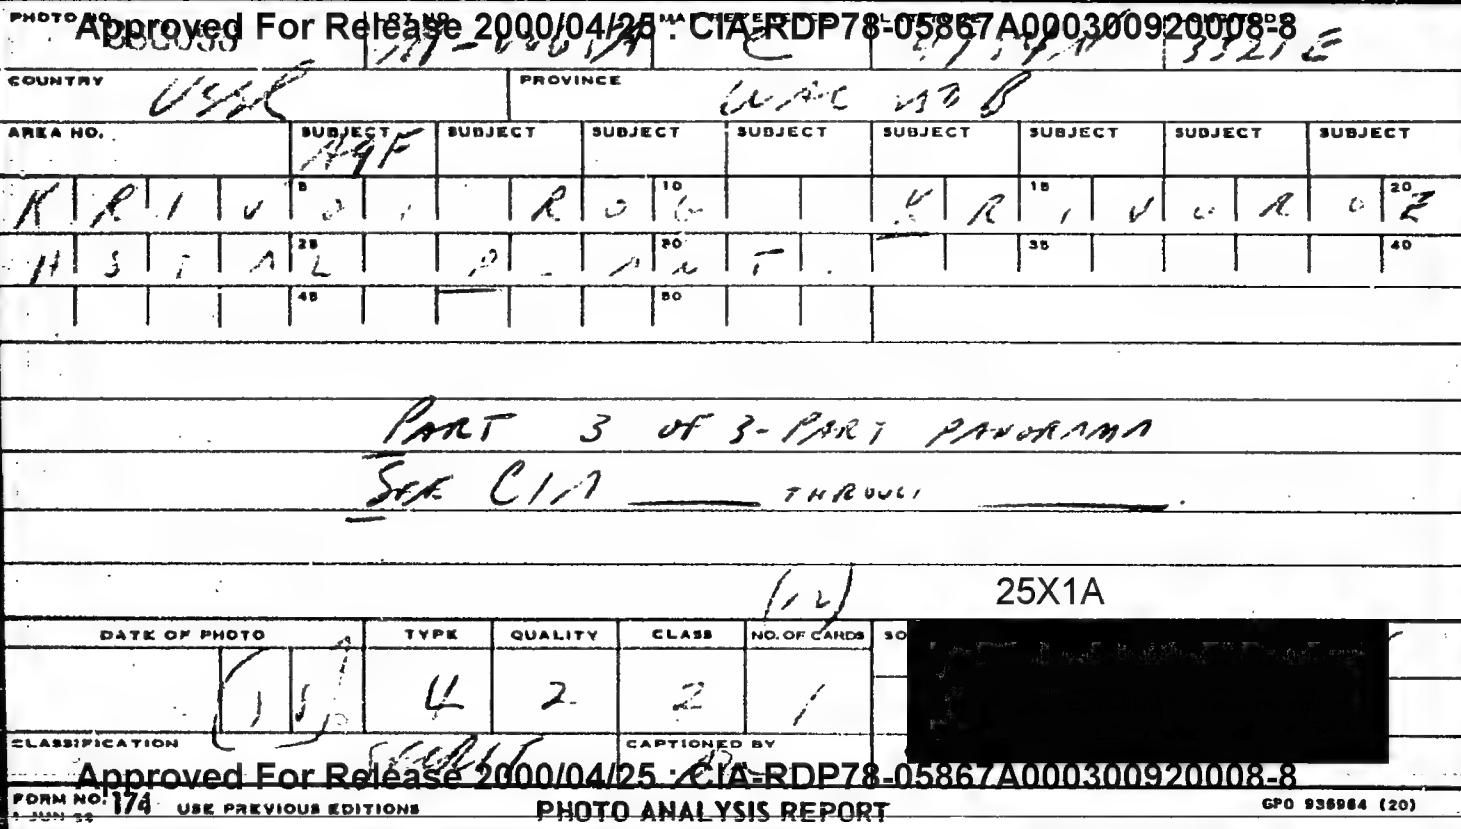 Approved For Release 2000/04/25 : CIA-RDP78-05867A000300920008-8
PHOTO NO.
3321 E
COUNTRY USSR PROVINCE WAC
AREA NO. SUBJECT SUBJECT SUBJECT SUBJECT SUBJECT SUBJECT SUBJECT SUBJECT
5 10 15 20
KRIVOI ROG KRIVOROZ
25 30 35 40
HSTAL PLANT.
45 50
PART 3 OF 3-PART PANORAMA
SEE CIA ____ THROUGH ____.
(12) 25X1A
DATE OF PHOTO TYPE QUALITY CLASS NO. OF CARDS SO
4 2 2 1
CLASSIFICATION SECRET CAPTIONED BY
Approved For Release 2000/04/25 : CIA-RDP78-05867A000300920008-8
FORM NO. 174 USE PREVIOUS EDITIONS PHOTO ANALYSIS REPORT GPO 936964 (20)
1 JUN